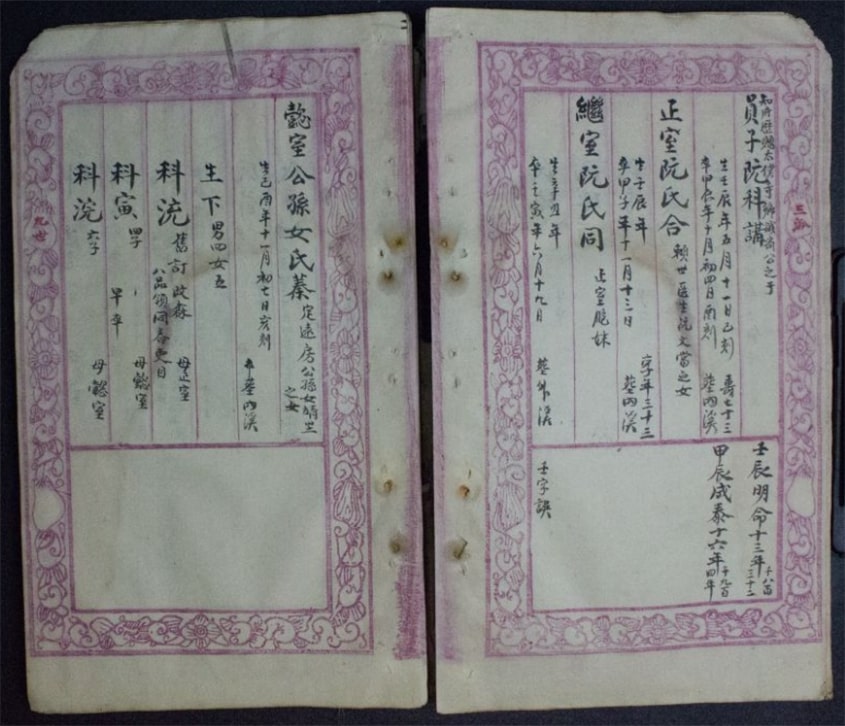 三派
員子阮科講
生壬辰年五月十一日己刻 壽七十三
卒甲辰年十月初四日酉刻 葬內溪
正室阮氏合 賴世医生阮文當之女
生壬辰年 享年三十三
卒甲子年十一月十三日 葬內溪
繼室阮氏同 正室胞妹
生辛丑年
卒壬寅年六月十九日 葬外溪
壬辰明命十三年 千八百三十二
甲辰成泰十六年 千九百四年
壬字誤
懿室公孫女氏蓁 定遠房公孫女
之女
生己酉年十一月初七日亥刻
卒 葬內溪
生下 男四女五
科沆 舊訂改
八品領同 母正室
科寅 四子 早卒 母懿室
科浣 六子 母懿室
九世